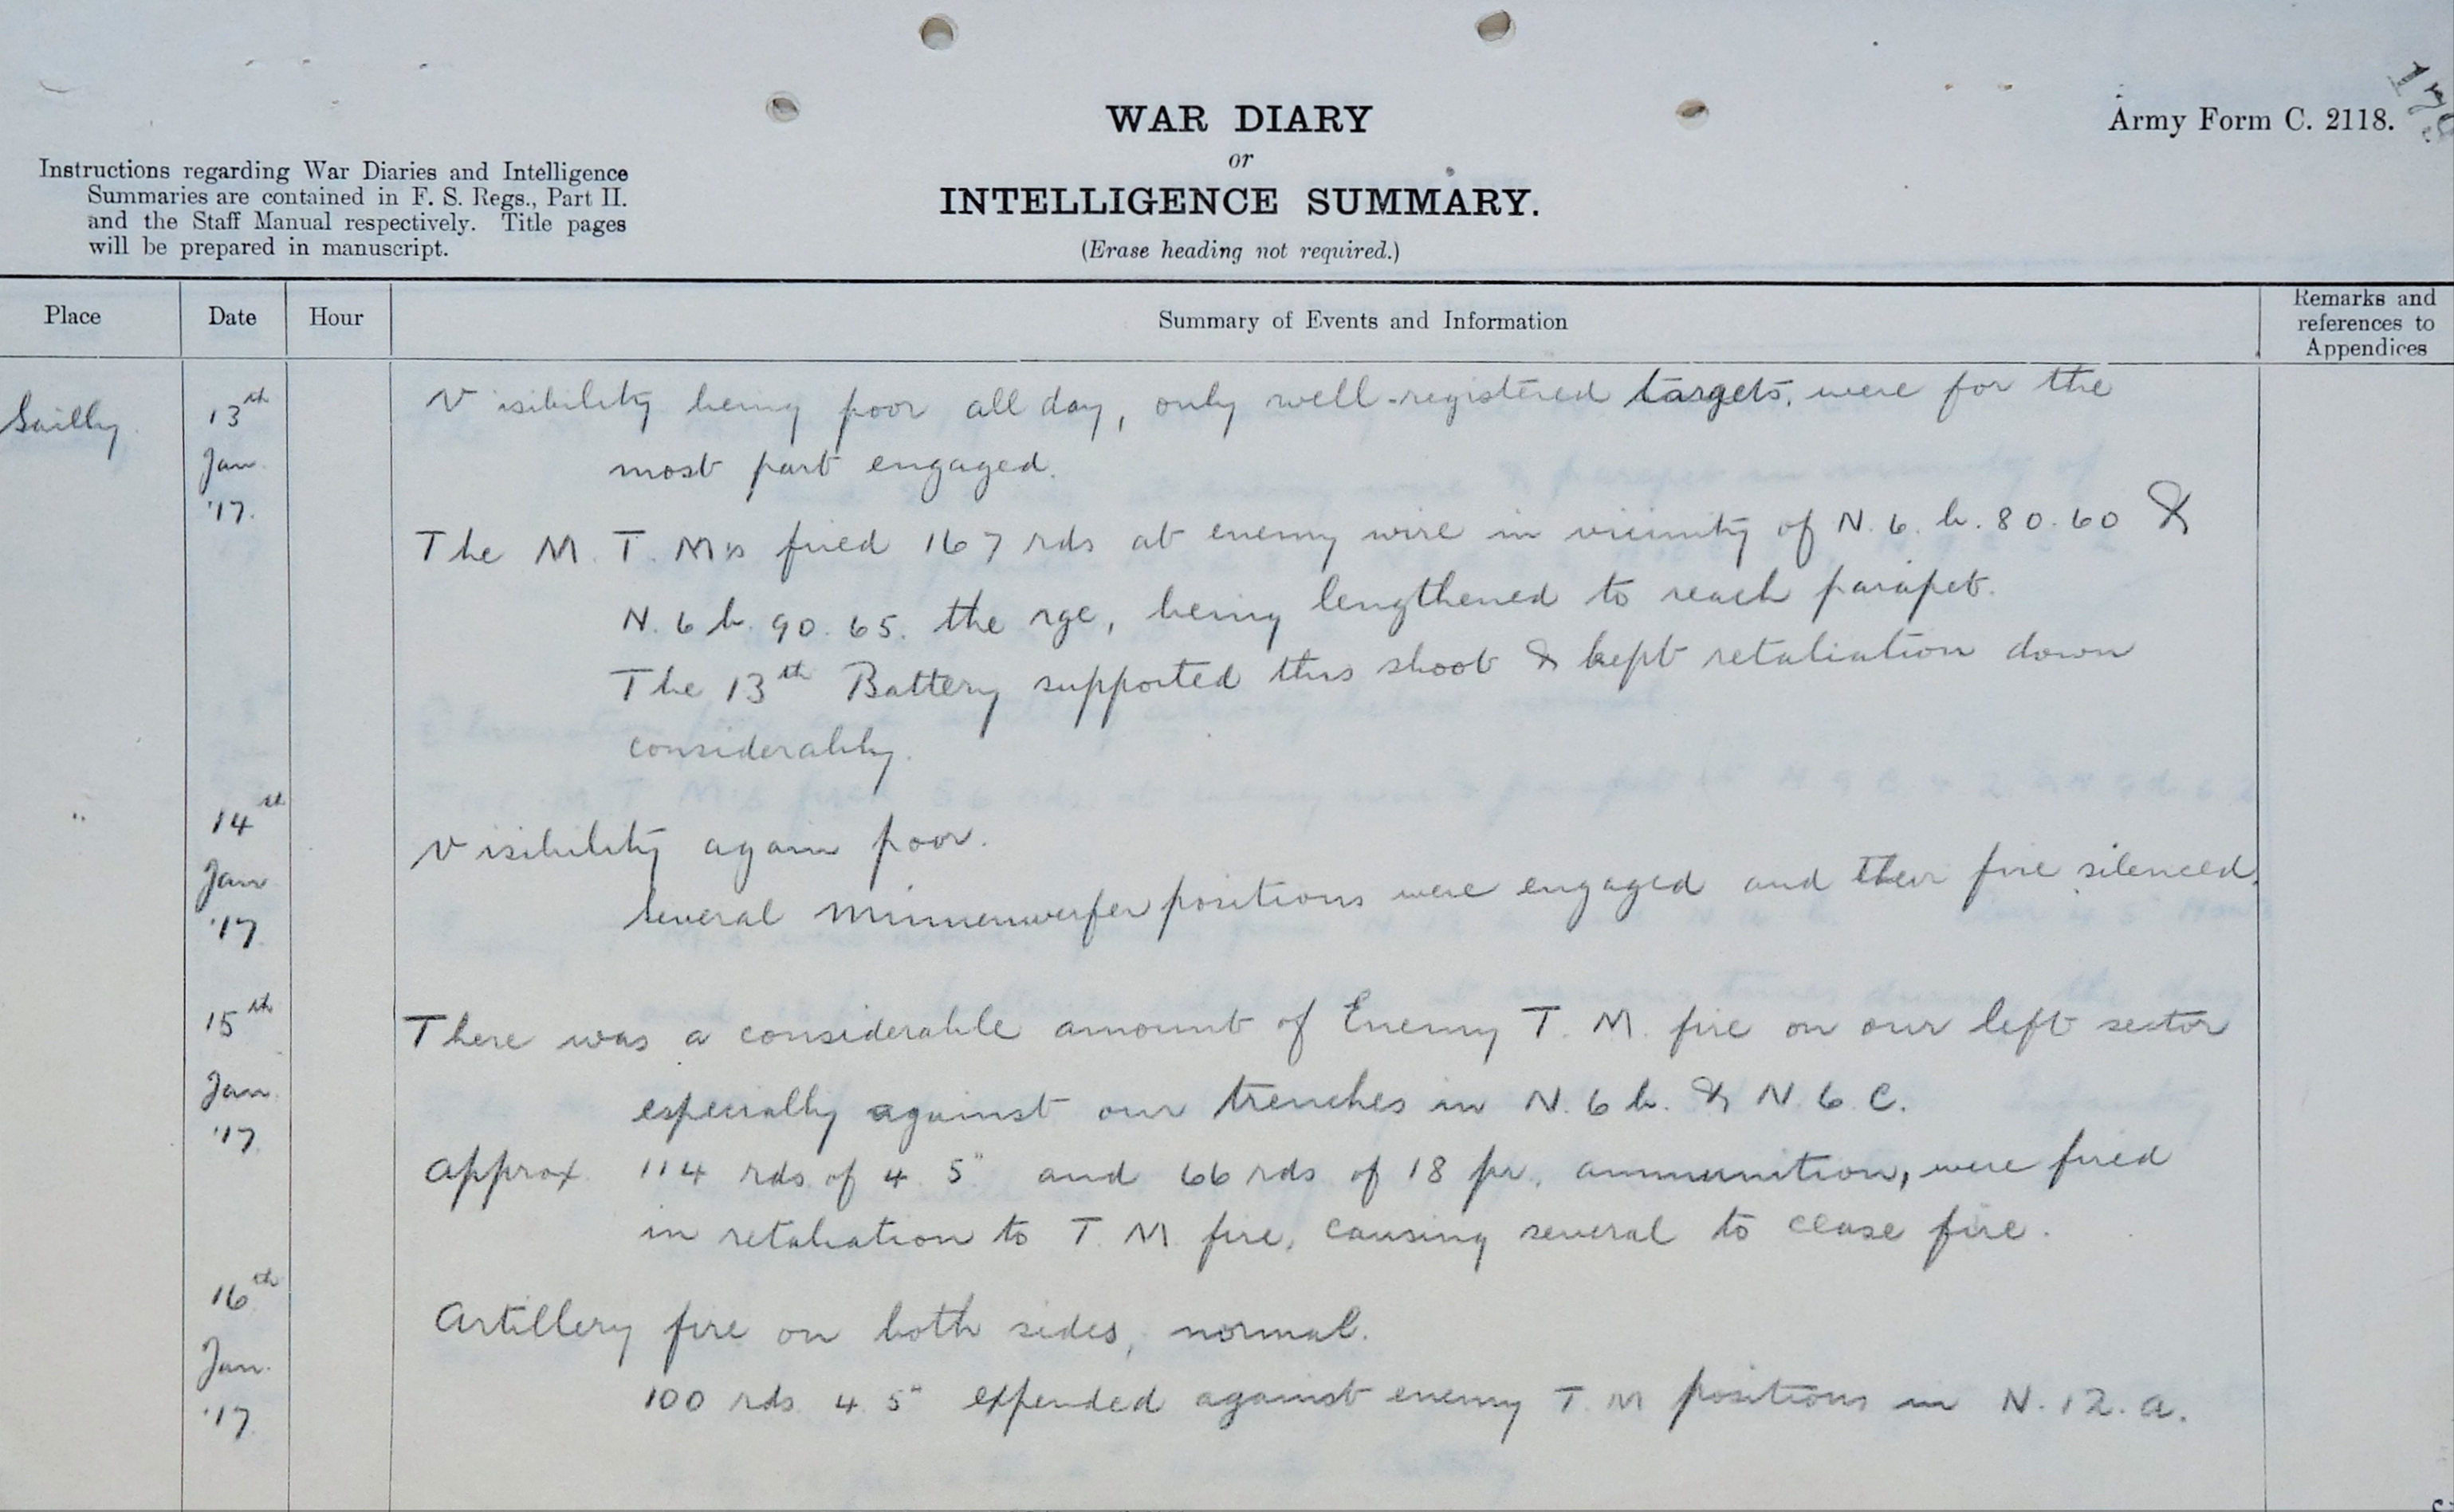 WAR DIARY
or
INTELLIGENCE SUMMARY.
(Erase heading not required.)
Army Form C. 2118.
Instructions regarding War Diaries and Intelligence
Summaries are contained in F. S. Regs., Part II.
and the Staff Manual respectively. Title pages
will be prepared in manuscript.
Place Date Hour Summary of Events and Information Remarks and references to Appendices
Sailly 13th Jan '17. Visibility being poor all day, only well-registered targets, were for the
most part engaged.
The M. T. M's fired 167 rds at enemy wire in vicinity of N. 6. b. 80.60 &
N. 6 b. 90. 65. the rge, being lengthened to reach parapet.
The 13th Battery supported this shoot & kept retaliation down
considerably.
" 14th Jan '17. Visibility again poor.
Several Minnenwerfer positions were engaged and their fire silenced.
15th Jan. '17. There was a considerable amount of Enemy T. M. fire on our left sector
especially against our trenches in N. 6 b. & N. 6 C.
Approx 114 rds of 4 5" and 66 rds of 18 pr. ammunition, were fired
in retaliation to T. M. fire, causing several to cease fire.
16th Jan. '17. Artillery fire on both sides, normal.
100 rds 4 5" expended against enemy T. M positions in N. 12. a.